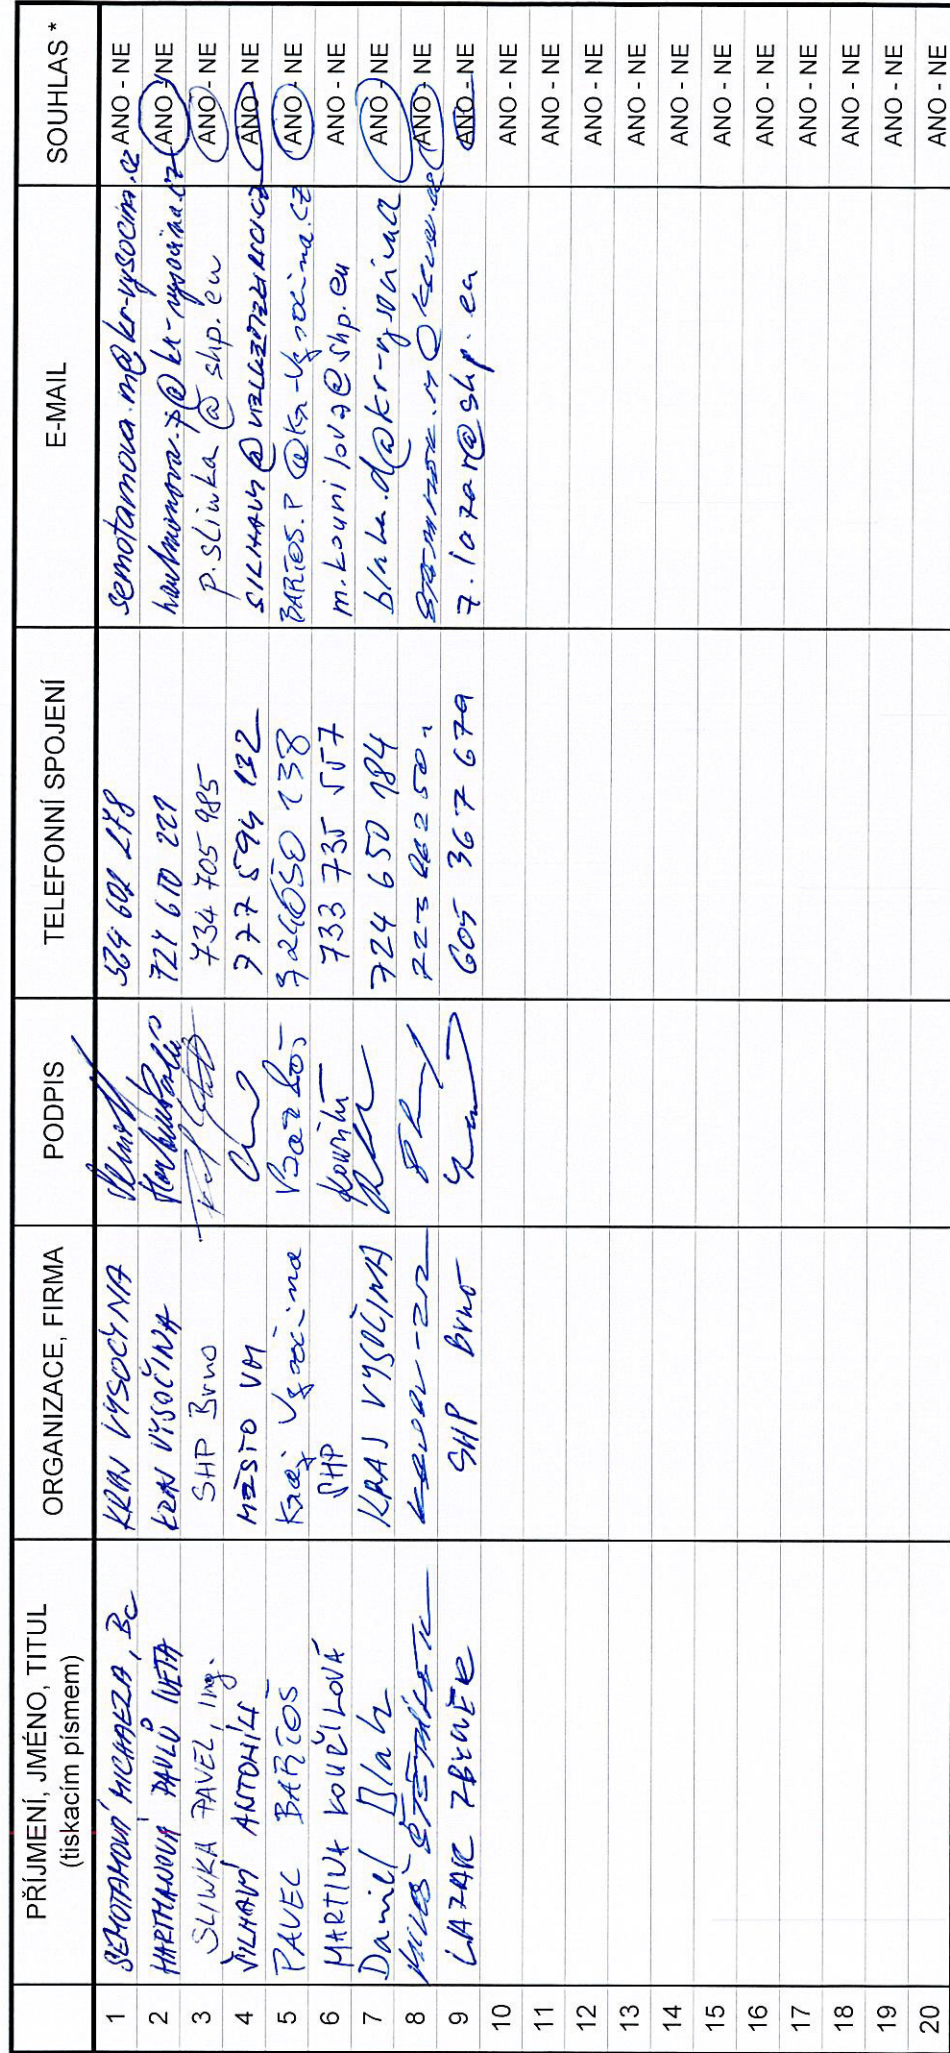 PŘÍJMENÍ, JMÉNO, TITUL (tiskacím písmem) ORGANIZACE, FIRMA PODPIS TELEFONNÍ SPOJENÍ E-MAIL SOUHLAS *
1 SEMOTAMOVÁ MICHAELA, Bc KRAJ VYSOČINA 564 602 278 semotamova.m@kr-vysocina.cz ANO - NE
2 HARTMANOVÁ PAVLŮ IVETA KRAJ VYSOČINA 724 610 221 ANO - NE
3 SLIWKA PAVEL, Ing. SHP Brno 734 705 985 p.sliwka@shp.eu ANO - NE
4 ŠILHAVÝ ANTONÍN MĚSTO VM 777 594 132 ANO - NE
5 PAVEL BARTOŠ Kraj Vysočina Bartoš 724650 138 BARTOS.P@kr-vysocina.cz ANO - NE
6 MARTINA KOUŘILOVÁ SHP 733 735 557 m.kourilova@shp.eu ANO - NE
7 Daniel Blaha KRAJ VYSOČINA 724 650 184 blaha.d@kr-vysocina ANO - NE
8 ANO - NE
9 LAZAR ZBYNĚK SHP Brno 605 367 679 z.lazar@shp.eu ANO - NE
10 ANO - NE
11 ANO - NE
12 ANO - NE
13 ANO - NE
14 ANO - NE
15 ANO - NE
16 ANO - NE
17 ANO - NE
18 ANO - NE
19 ANO - NE
20 ANO - NE